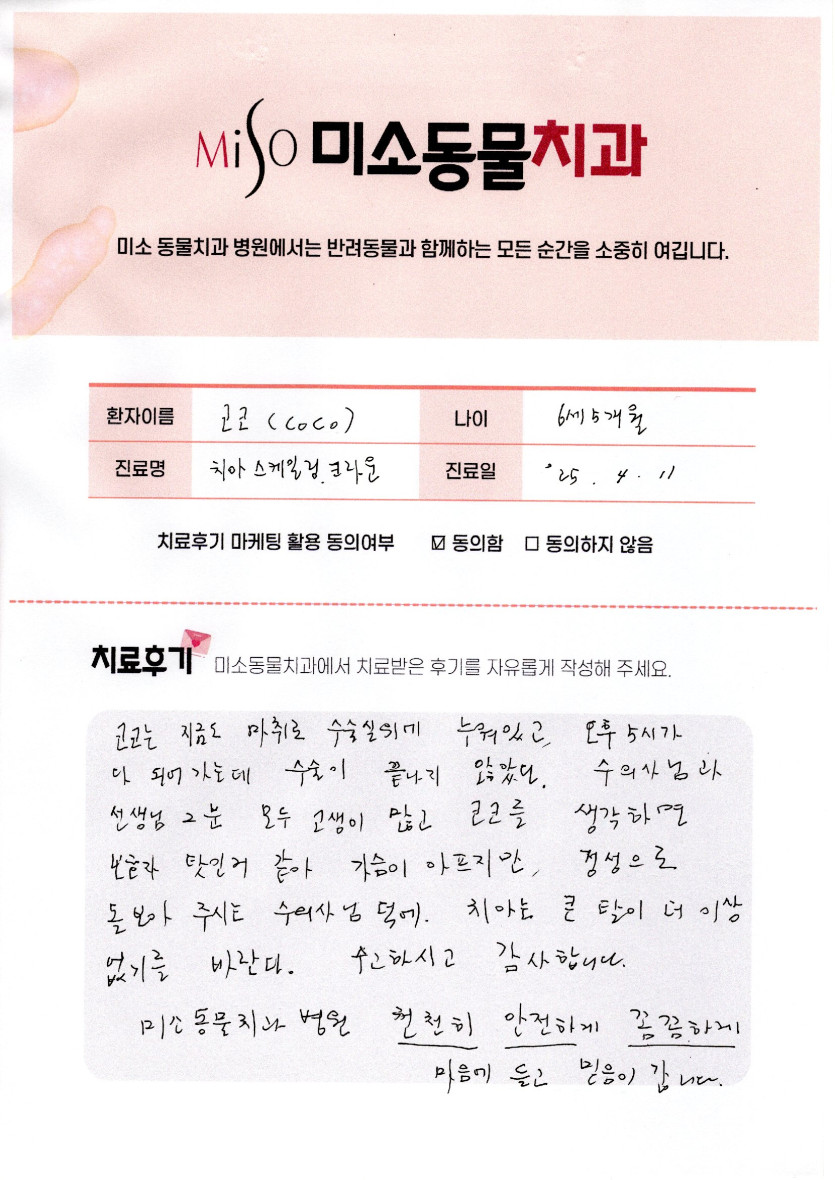 MiSO 미소동물치과
미소 동물치과 병원에서는 반려동물과 함께하는 모든 순간을 소중히 여깁니다.
환자이름 코코 (CoCo) 나이 6세 5개월
진료명 치아 스케일링, 크라운 진료일 '25. 4. 11
치료후기 마케팅 활용 동의여부 ☑ 동의함 ☐ 동의하지 않음
치료후기 미소동물치과에서 치료받은 후기를 자유롭게 작성해 주세요.
코코는 지금도 마취로 수술실의에 누워있고, 오후 5시가
다 되어 가는데 수술이 끝나지 않았다. 수의사님과
선생님 2분 모두 고생이 많고 코코를 생각하면
보호자 탓인거 같아 가슴이 아프지만, 정성으로
돌보아 주시는 수의사님 덕에. 치아는 큰 탈이 더 이상
없기를 바란다. 수고하시고 감사합니다.
미소동물치과 병원 천천히 안전하게 꼼꼼하게
마음에 들고 믿음이 갑니다.